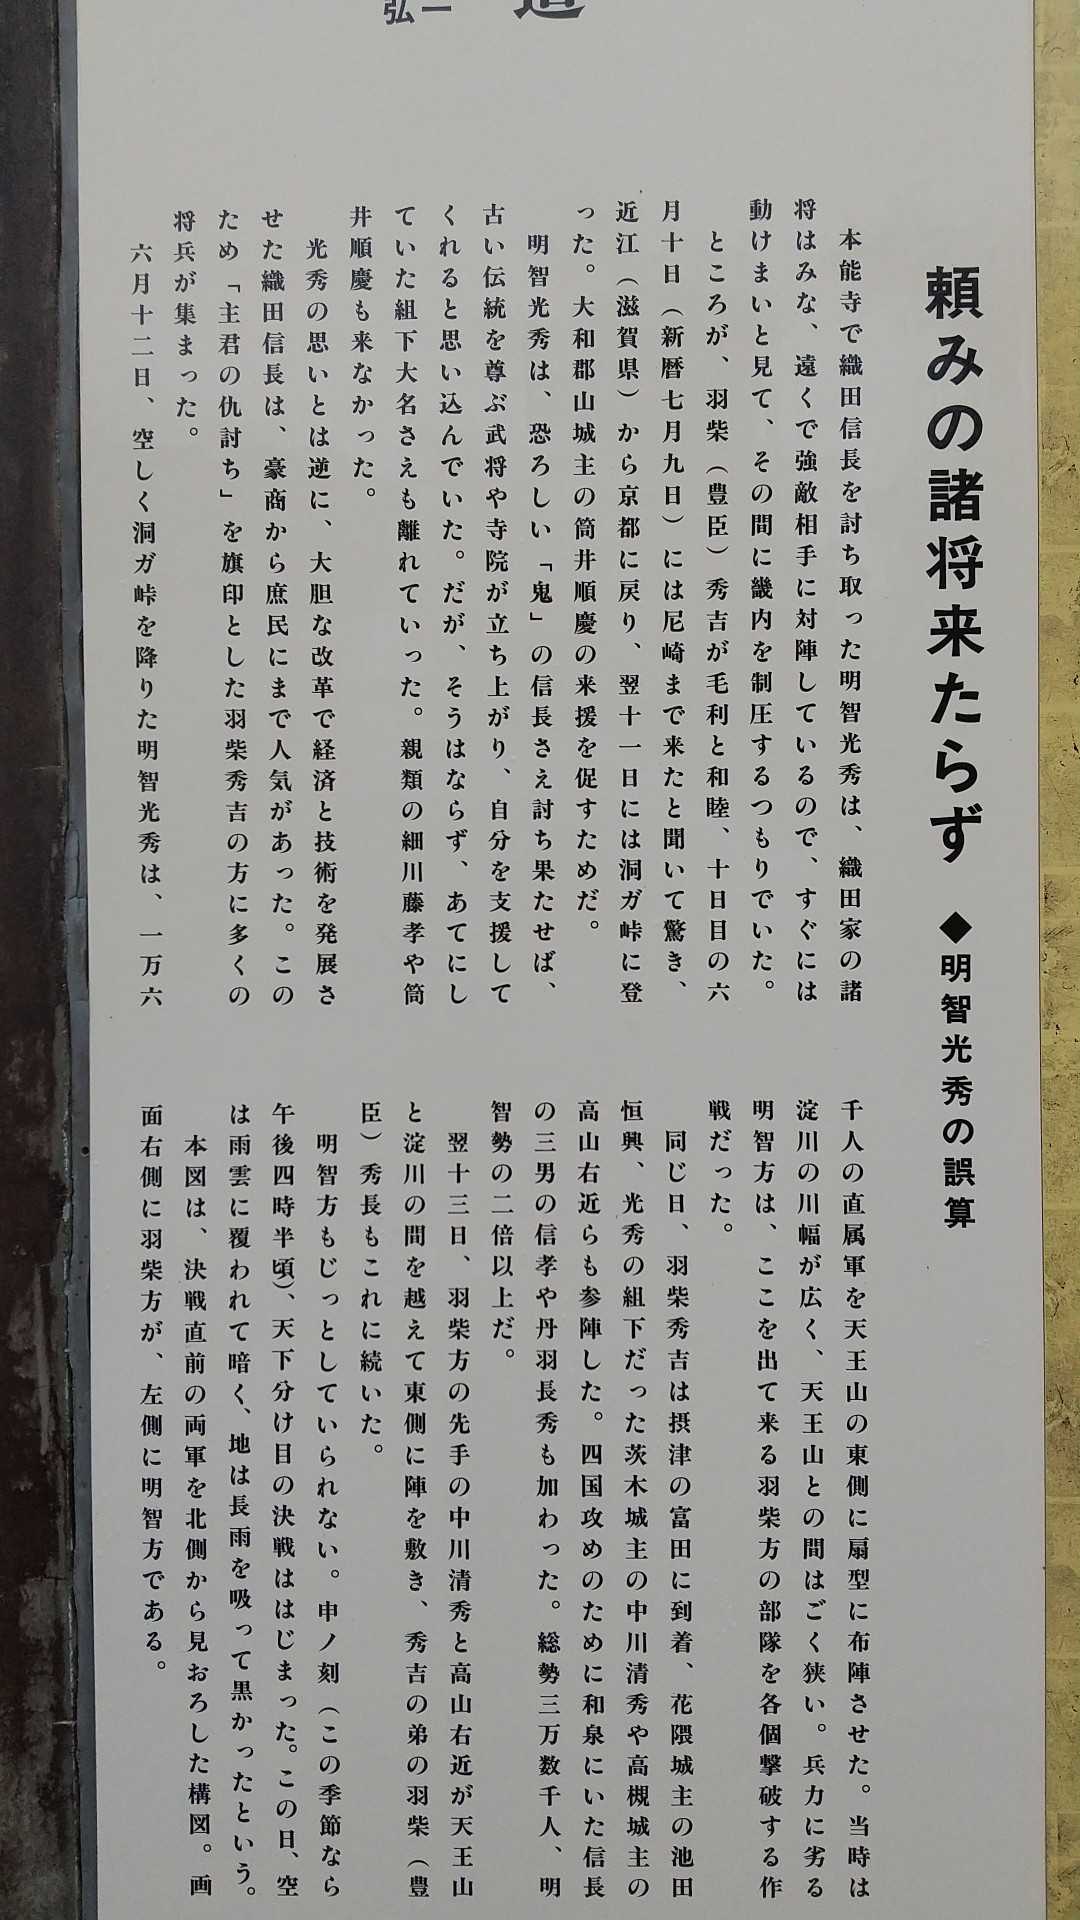 頼みの諸将来たらず ◆明智光秀の誤算
本能寺で織田信長を討ち取った明智光秀は、織田家の諸
将はみな、遠くで強敵相手に対陣しているので、すぐには
動けまいと見て、その間に畿内を制圧するつもりでいた。
ところが、羽柴（豊臣）秀吉が毛利と和睦、十日目の六
月十日（新暦七月九日）には尼崎まで来たと聞いて驚き、
近江（滋賀県）から京都に戻り、翌十一日には洞ガ峠に登
った。大和郡山城主の筒井順慶の来援を促すためだ。
明智光秀は、恐ろしい「鬼」の信長さえ討ち果たせば、
古い伝統を尊ぶ武将や寺院が立ち上がり、自分を支援して
くれると思い込んでいた。だが、そうはならず、あてにし
ていた組下大名さえも離れていった。親類の細川藤孝や筒
井順慶も来なかった。
光秀の思いとは逆に、大胆な改革で経済と技術を発展さ
せた織田信長は、豪商から庶民にまで人気があった。この
ため「主君の仇討ち」を旗印とした羽柴秀吉の方に多くの
将兵が集まった。
六月十二日、空しく洞ガ峠を降りた明智光秀は、一万六
千人の直属軍を天王山の東側に扇型に布陣させた。当時は
淀川の川幅が広く、天王山との間はごく狭い。兵力に劣る
明智方は、ここを出て来る羽柴方の部隊を各個撃破する作
戦だった。
同じ日、羽柴秀吉は摂津の富田に到着、花隈城主の池田
恒興、光秀の組下だった茨木城主の中川清秀や高槻城主の
高山右近らも参陣した。四国攻めのために和泉にいた信長
の三男の信孝や丹羽長秀も加わった。総勢三万数千人、明
智勢の二倍以上だ。
翌十三日、羽柴方の先手の中川清秀と高山右近が天王山
と淀川の間を越えて東側に陣を敷き、秀吉の弟の羽柴（豊
臣）秀長もこれに続いた。
明智方もじっとしていられない。申ノ刻（この季節なら
午後四時半頃）、天下分け目の決戦ははじまった。この日、空
は雨雲に覆われて暗く、地は長雨を吸って黒かったという。
本図は、決戦直前の両軍を北側から見おろした構図。画
面右側に羽柴方が、左側に明智方である。
弘一